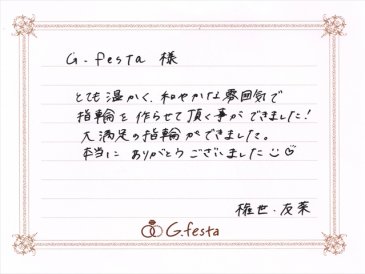 G.festa 様
とても温かく、和やかな雰囲気で
指輪を作らせて頂く事ができました！
大満足の指輪ができました。
本当に ありがとうございました
雅世・友菜
G.festa